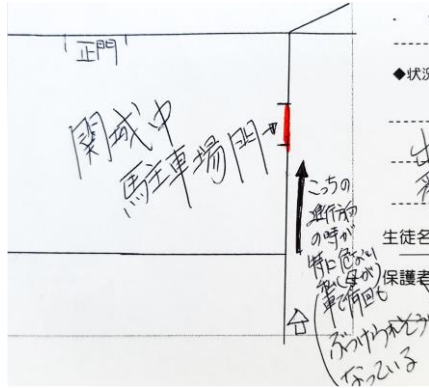 正門
関城中
駐車場門→
こっちの
進行方向
の時が
特に危ない
私(母が)
車で何回も
ぶつけられそうに
なっている
◆状況
生徒名
保護者